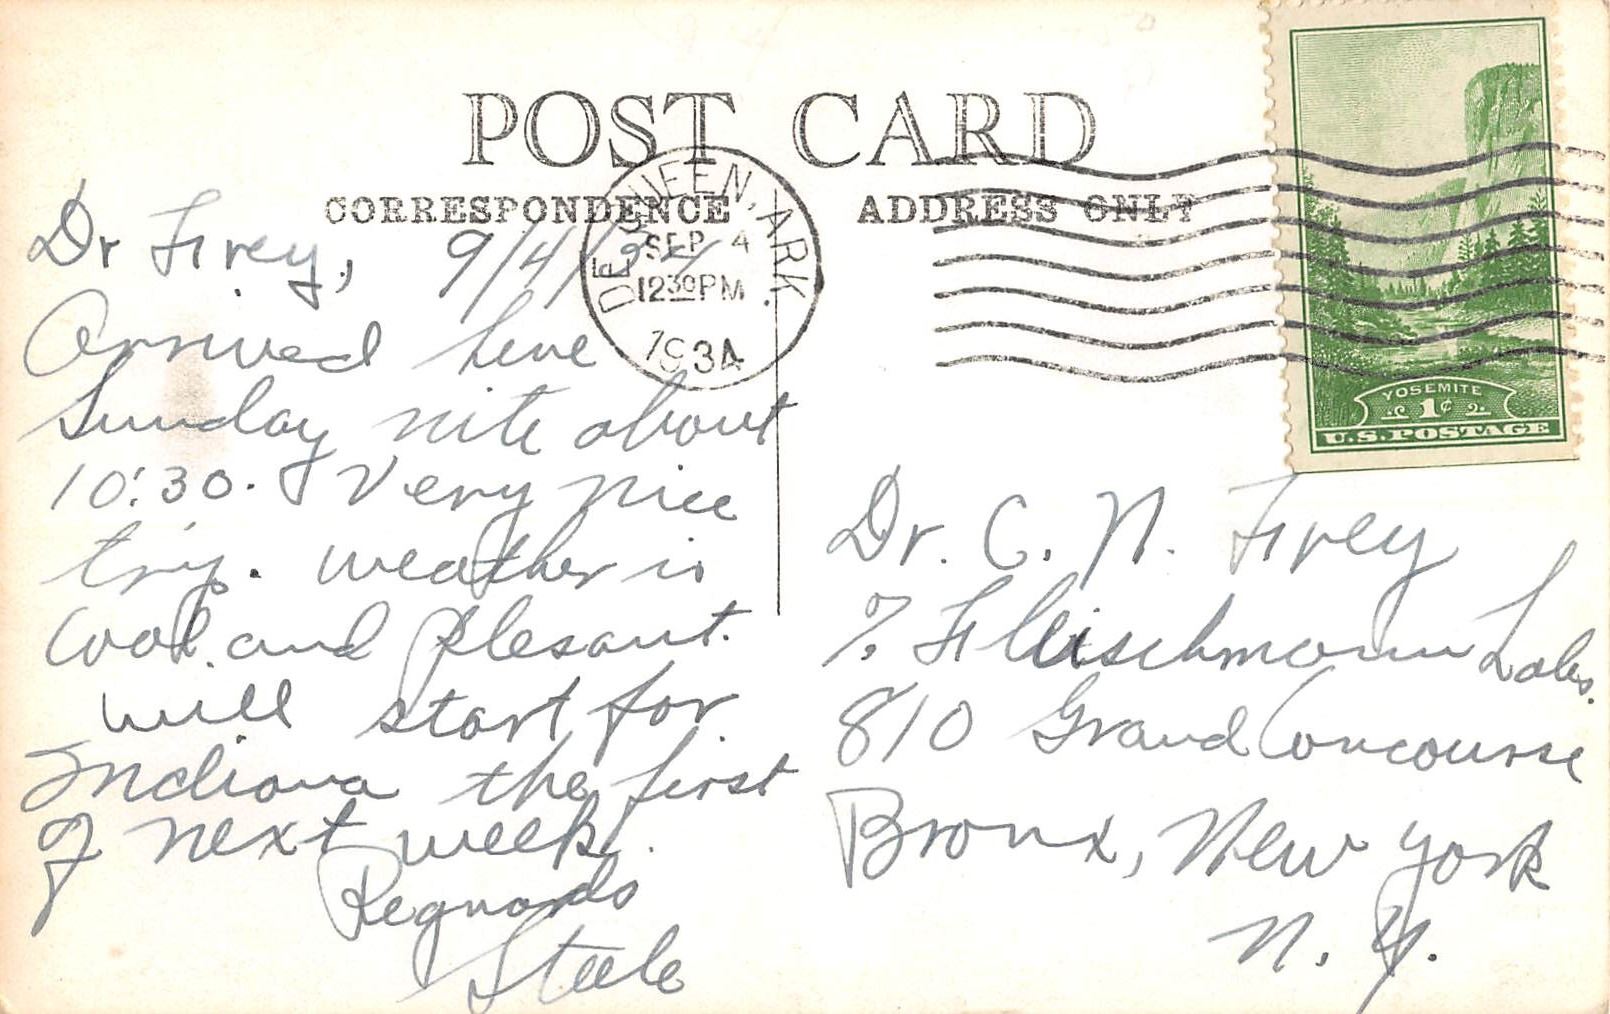 POST CARD
CORRESPONDENCE
ADDRESS ONLY
DE QUEEN, ARK.
SEP 4
12 30 PM
1934
YOSEMITE
1¢
U.S. POSTAGE
Dr Frey, 9/4/34
Arrived here
Sunday nite about
10:30. Very nice
trip. weather is
Cool and plesant.
will start for
Indiana the first
of next week.
Regards
Steele
Dr. C. N. Frey
% Fleischmann Labs.
810 Grand Concourse
Bronx, New York
N. Y.